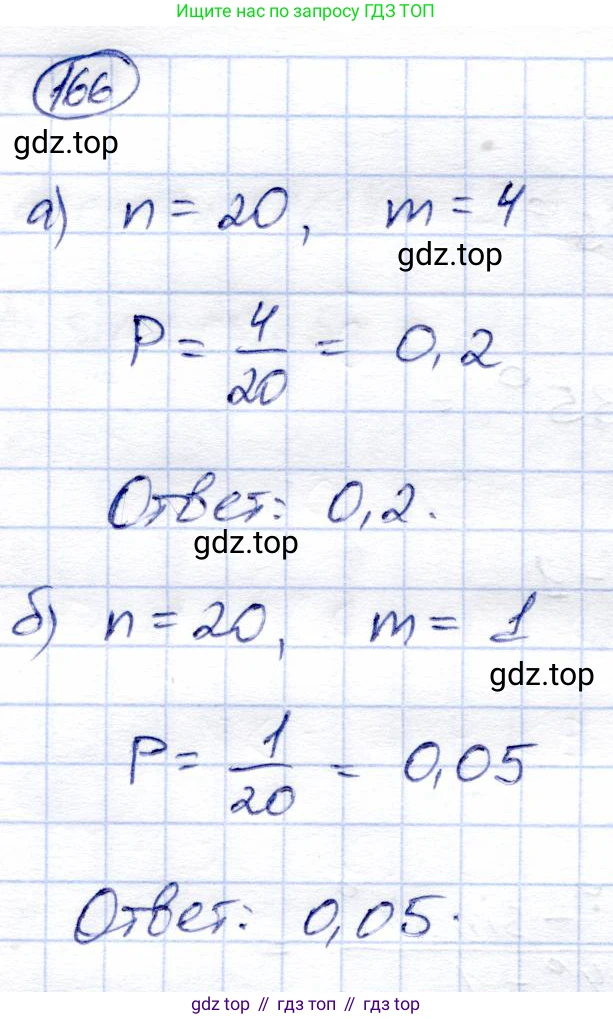 Ищите нас по запросу ГДЗ ТОП
166
gdz.top
а) n = 20, m = 4
gdz.top
P = 4/20 = 0,2
Ответ: 0,2.
gdz.top
б) n = 20, m = 1
gdz.top
P = 1/20 = 0,05
Ответ: 0,05.
gdz top // гдз топ // гдз.top